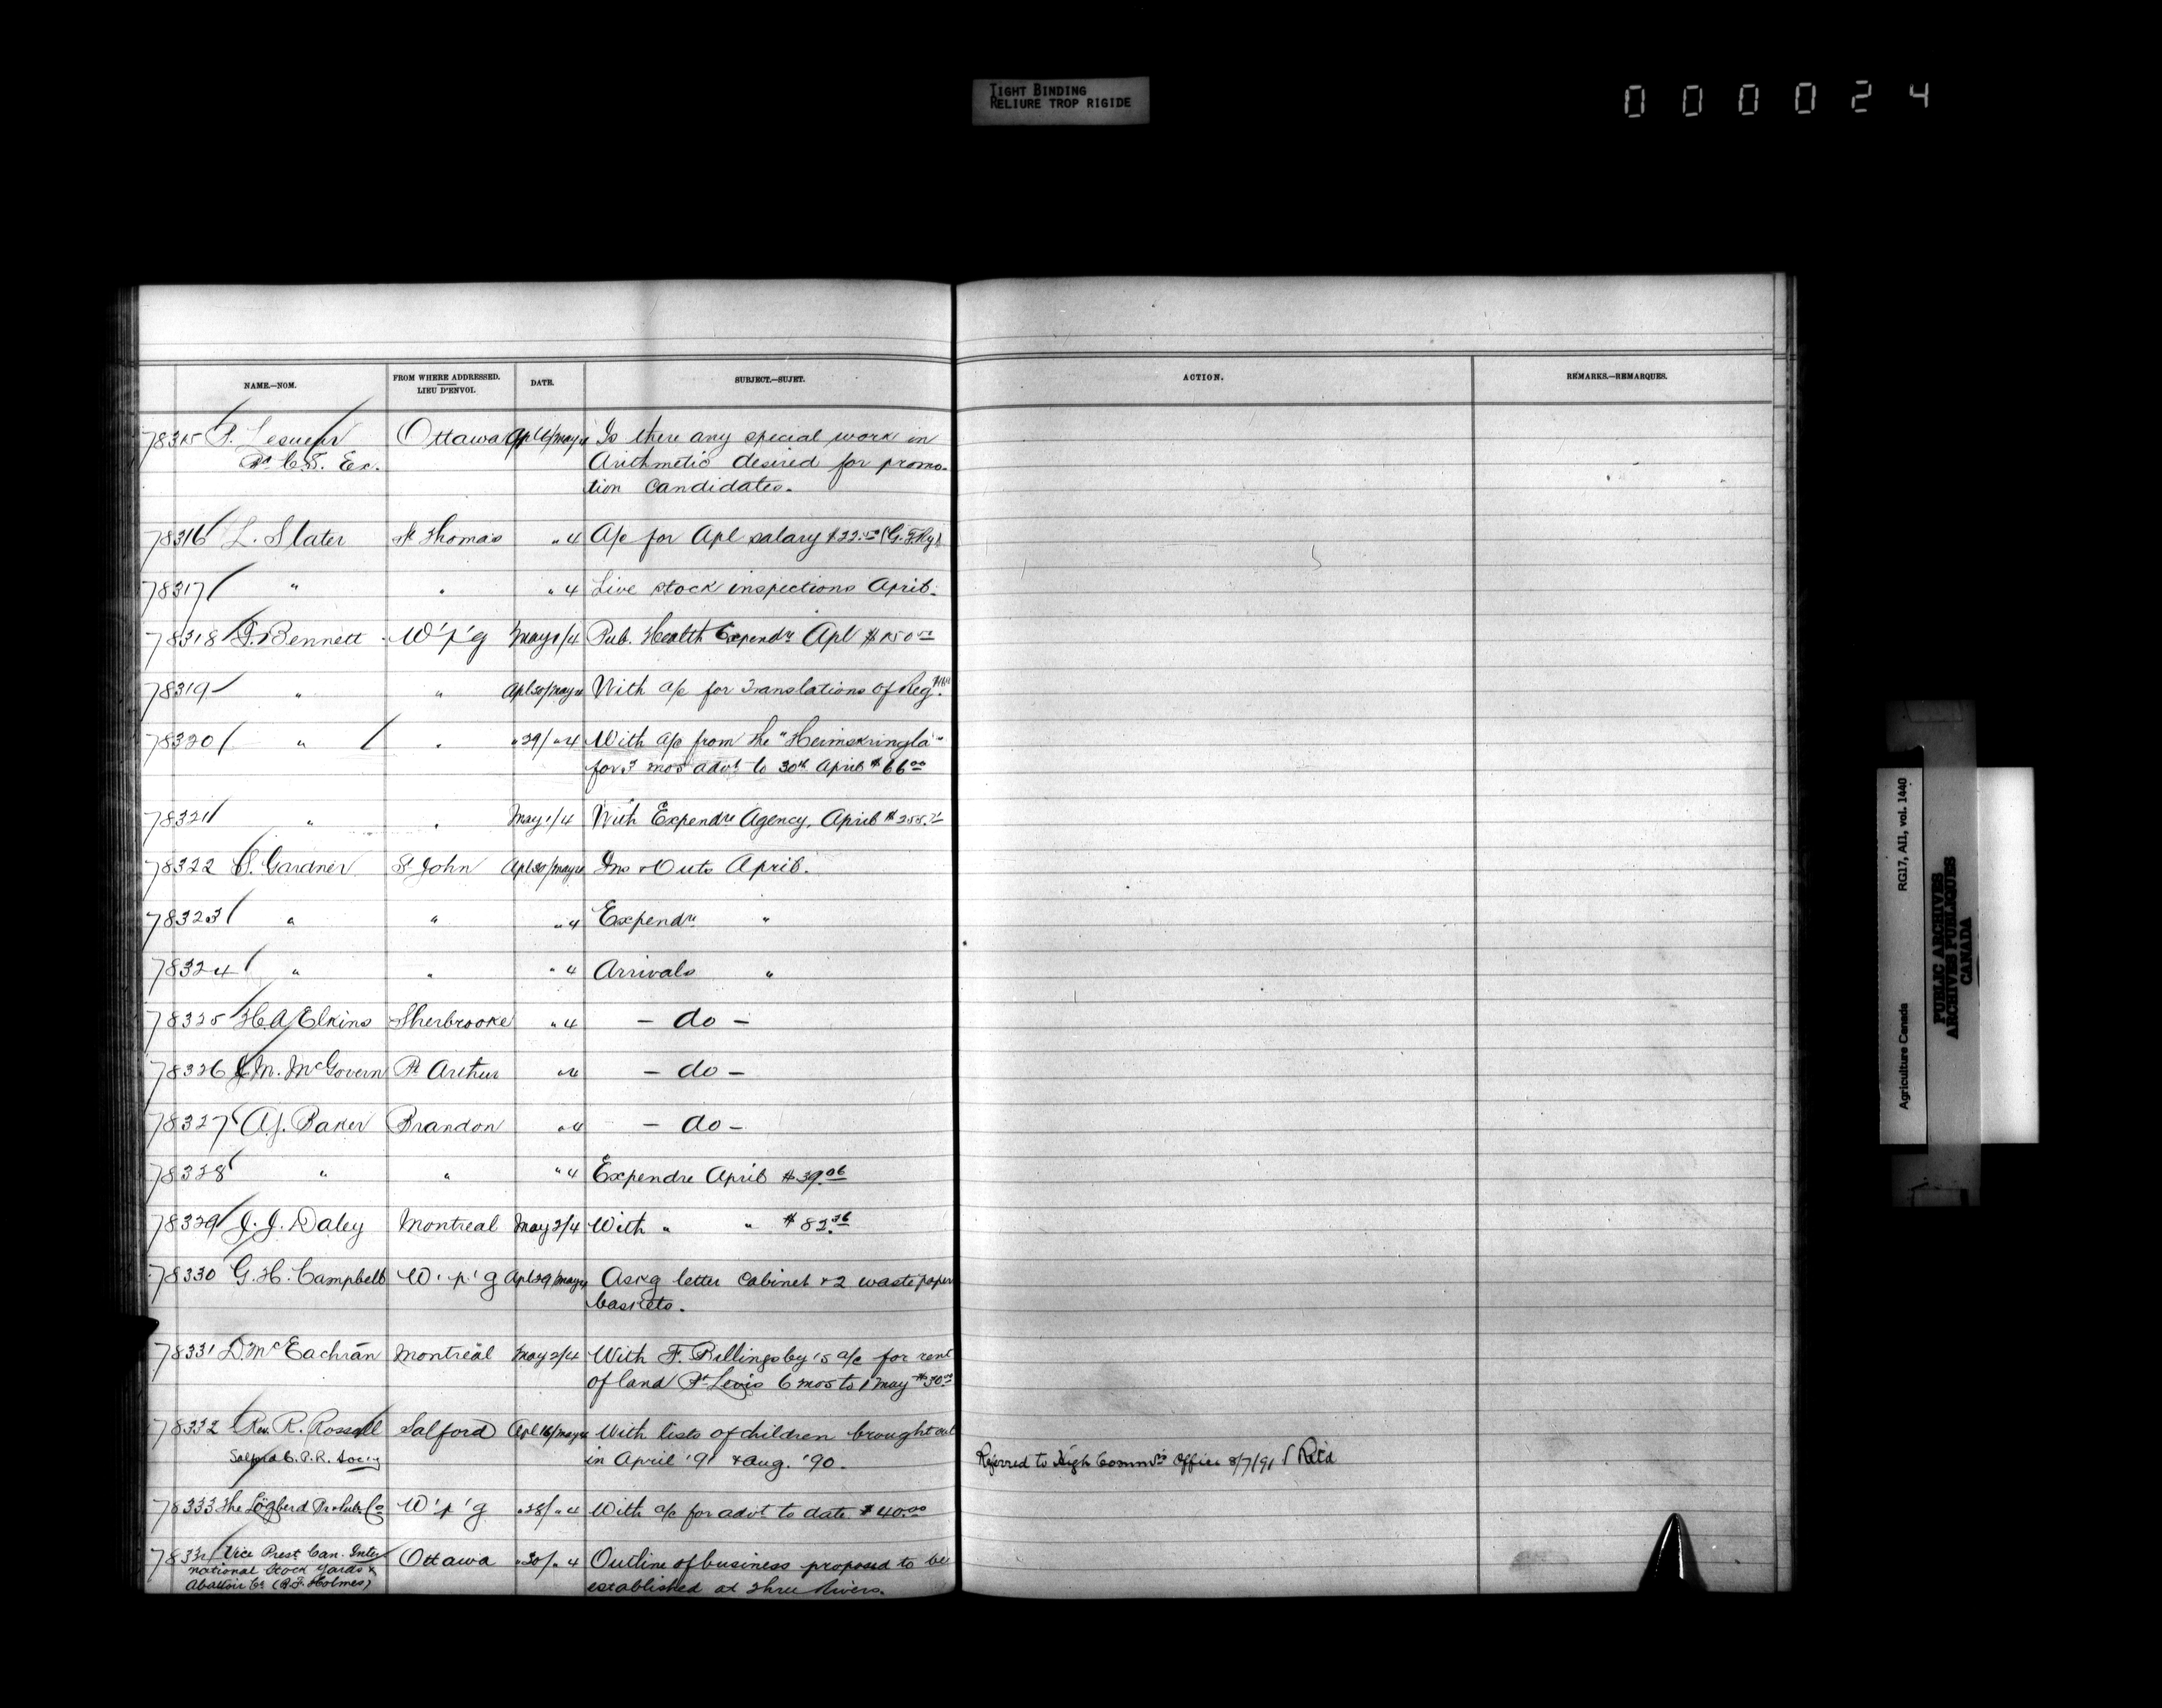 TIGHT BINDING
RELIURE TROP RIGIDE
000024
NAME.—NOM.
FROM WHERE ADDRESSED.
LIEU D'ENVOI.
DATE.
SUBJECT.—SUJET.
ACTION.
REMARKS.—REMARQUES.
78315 P. Lesueur Ottawa Apl /May 4 Is there any special work in
C.S. Ex. Arithmetic desired for promo-
tion candidates.
78316 L. Slater St Thomas " 4 A/c for Apl salary $22.50 (G.T.Ry)
78317 " " " 4 Live stock inspections April.
78318 Bennett W'p'g May 1/4 Pub. Health Expendre Apl $150
78319 " " Apl 30/May 4 With a/c for Translations of Reg
78320 " " " 29/ " 4 With a/c from the "Heimskringla"
for 3 mos advt to 30th April $66.00
78321 " " May 1/4 With Expendre Agency, April $255.
78322 S. Gardner St John Apl 30/May 4 Ins & Outs April.
78323 " " " 4 Expendre "
78324 " " " 4 Arrivals "
78325 H.A. Elkins Sherbrooke " 4 — do —
78326 J.M. McGovern Pt Arthur " 4 — do —
78327 A.J. Baker Brandon " 4 — do —
78328 " " " 4 Expendre April $39.06
78329 J.J. Daley Montreal May 2/4 With " " $82.36
78330 G.H. Campbell W'p'g Apl 29/May 4 Askg letter cabinet & 2 waste paper
baskets.
78331 D. McEachran Montreal May 2/4 With F. Billingsby's a/c for rent
of land Pt Levis 6 mos to 1 May $30.00
78332 Rev. R. Rossall Salford Apl 16/May 4 With lists of children brought out
Salford C.P.R. Socy in April '91 & Aug. '90. Referred to High Commrs Office 8/7/91 Retd
78333 The Lögberd Pr & Pub. Co W'p'g " 28/ " 4 With a/c for advt to date $40.00
78334 Vice Prest Can. Inter- Ottawa " 30/ " 4 Outline of business proposed to be
national Stock Yards & established at Three Rivers.
Abattoir Co (Holmes)
Agriculture Canada RG17, A11, vol. 1440
PUBLIC ARCHIVES
ARCHIVES PUBLIQUES
CANADA